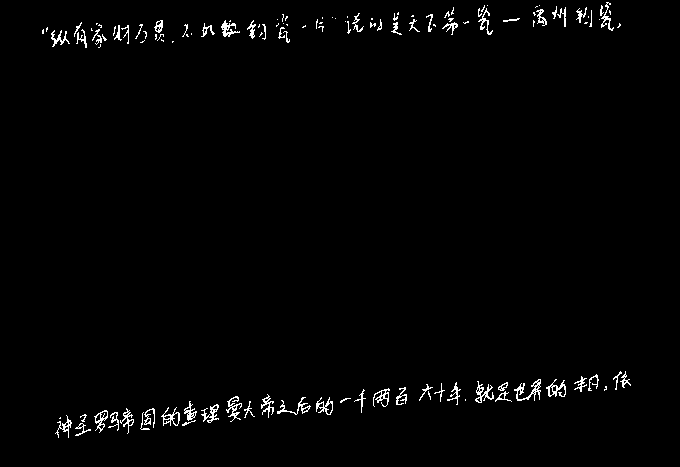 “纵有家财万贯，不如钧瓷一片”说的是天下第一瓷—禹州钧瓷，
神圣罗马帝国的查理曼大帝之后的一千两百六十年，就是世界的，依